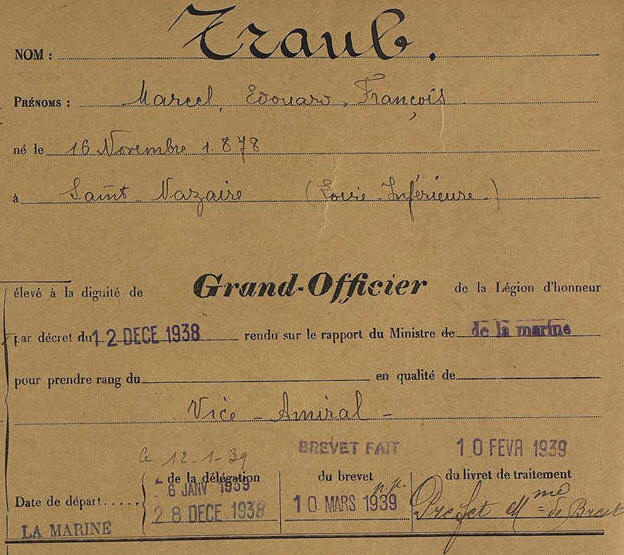 NOM : Traub.
PRÉNOMS : Marcel, Edouard, François
né le 16 Novembre 1.878
à Saint-Nazaire (Loire-Inférieure.)
élevé à la dignité de Grand-Officier de la Légion d'honneur
par décret du 12 DECE 1938 rendu sur le rapport du Ministre de de la marine
pour prendre rang du en qualité de
Vice-Amiral-
12-1-39 BREVET FAIT 10 FEVR 1939
de la délégation du brevet du livret de traitement
Date de départ..... 6 JANV 1939 10 MARS 1939 p.p. Préfet Mme de Brest
LA MARINE 28 DECE. 1938